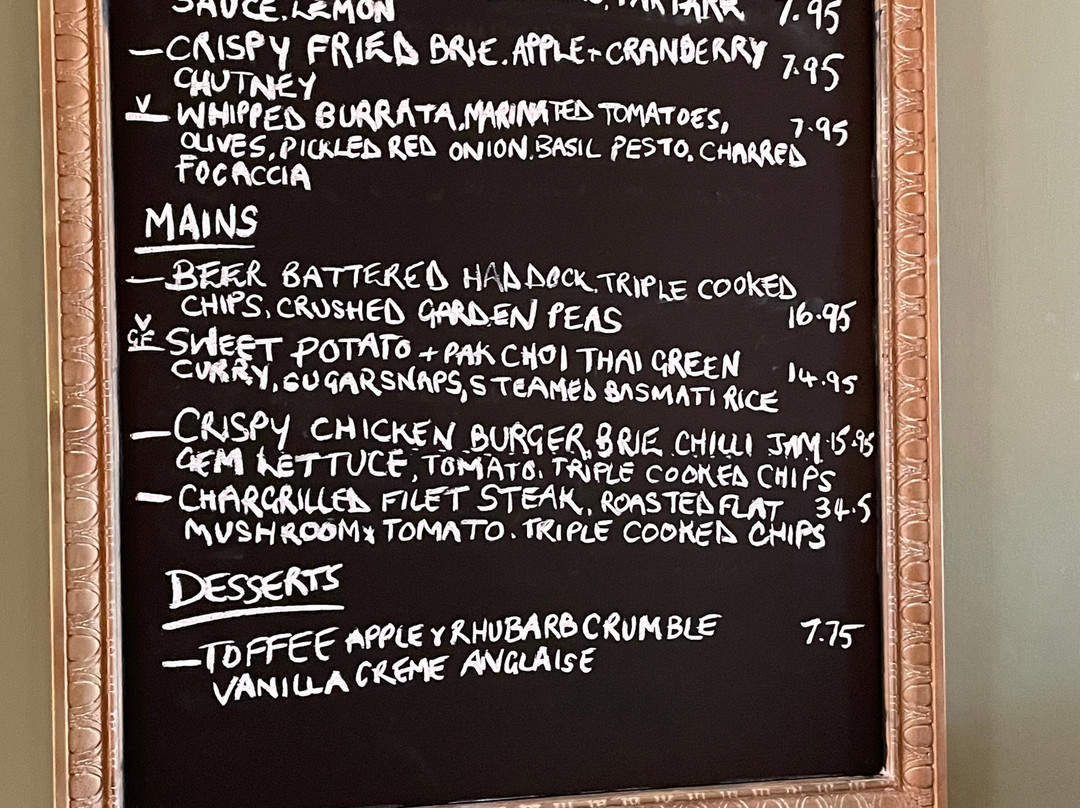 SAUCE. LEMON TARTARE 7.95
—CRISPY FRIED BRIE. APPLE + CRANBERRY 7.95
CHUTNEY
V
— WHIPPED BURRATA, MARINATED TOMATOES, 7.95
OLIVES, PICKLED RED ONION. BASIL PESTO, CHARRED
FOCACCIA
MAINS
—BEER BATTERED HADDOCK. TRIPLE COOKED
CHIPS, CRUSHED GARDEN PEAS 16.95
V
GF—SWEET POTATO + PAK CHOI THAI GREEN
CURRY, SUGARSNAPS, STEAMED BASMATI RICE 14.95
—CRISPY CHICKEN BURGER, BRIE CHILLI JAM 15.95
GEM LETTUCE, TOMATO. TRIPLE COOKED CHIPS
—CHARGRILLED FILET STEAK, ROASTED FLAT 34.5
MUSHROOM & TOMATO. TRIPLE COOKED CHIPS
DESSERTS
—TOFFEE APPLE & RHUBARB CRUMBLE 7.75
VANILLA CREME ANGLAISE